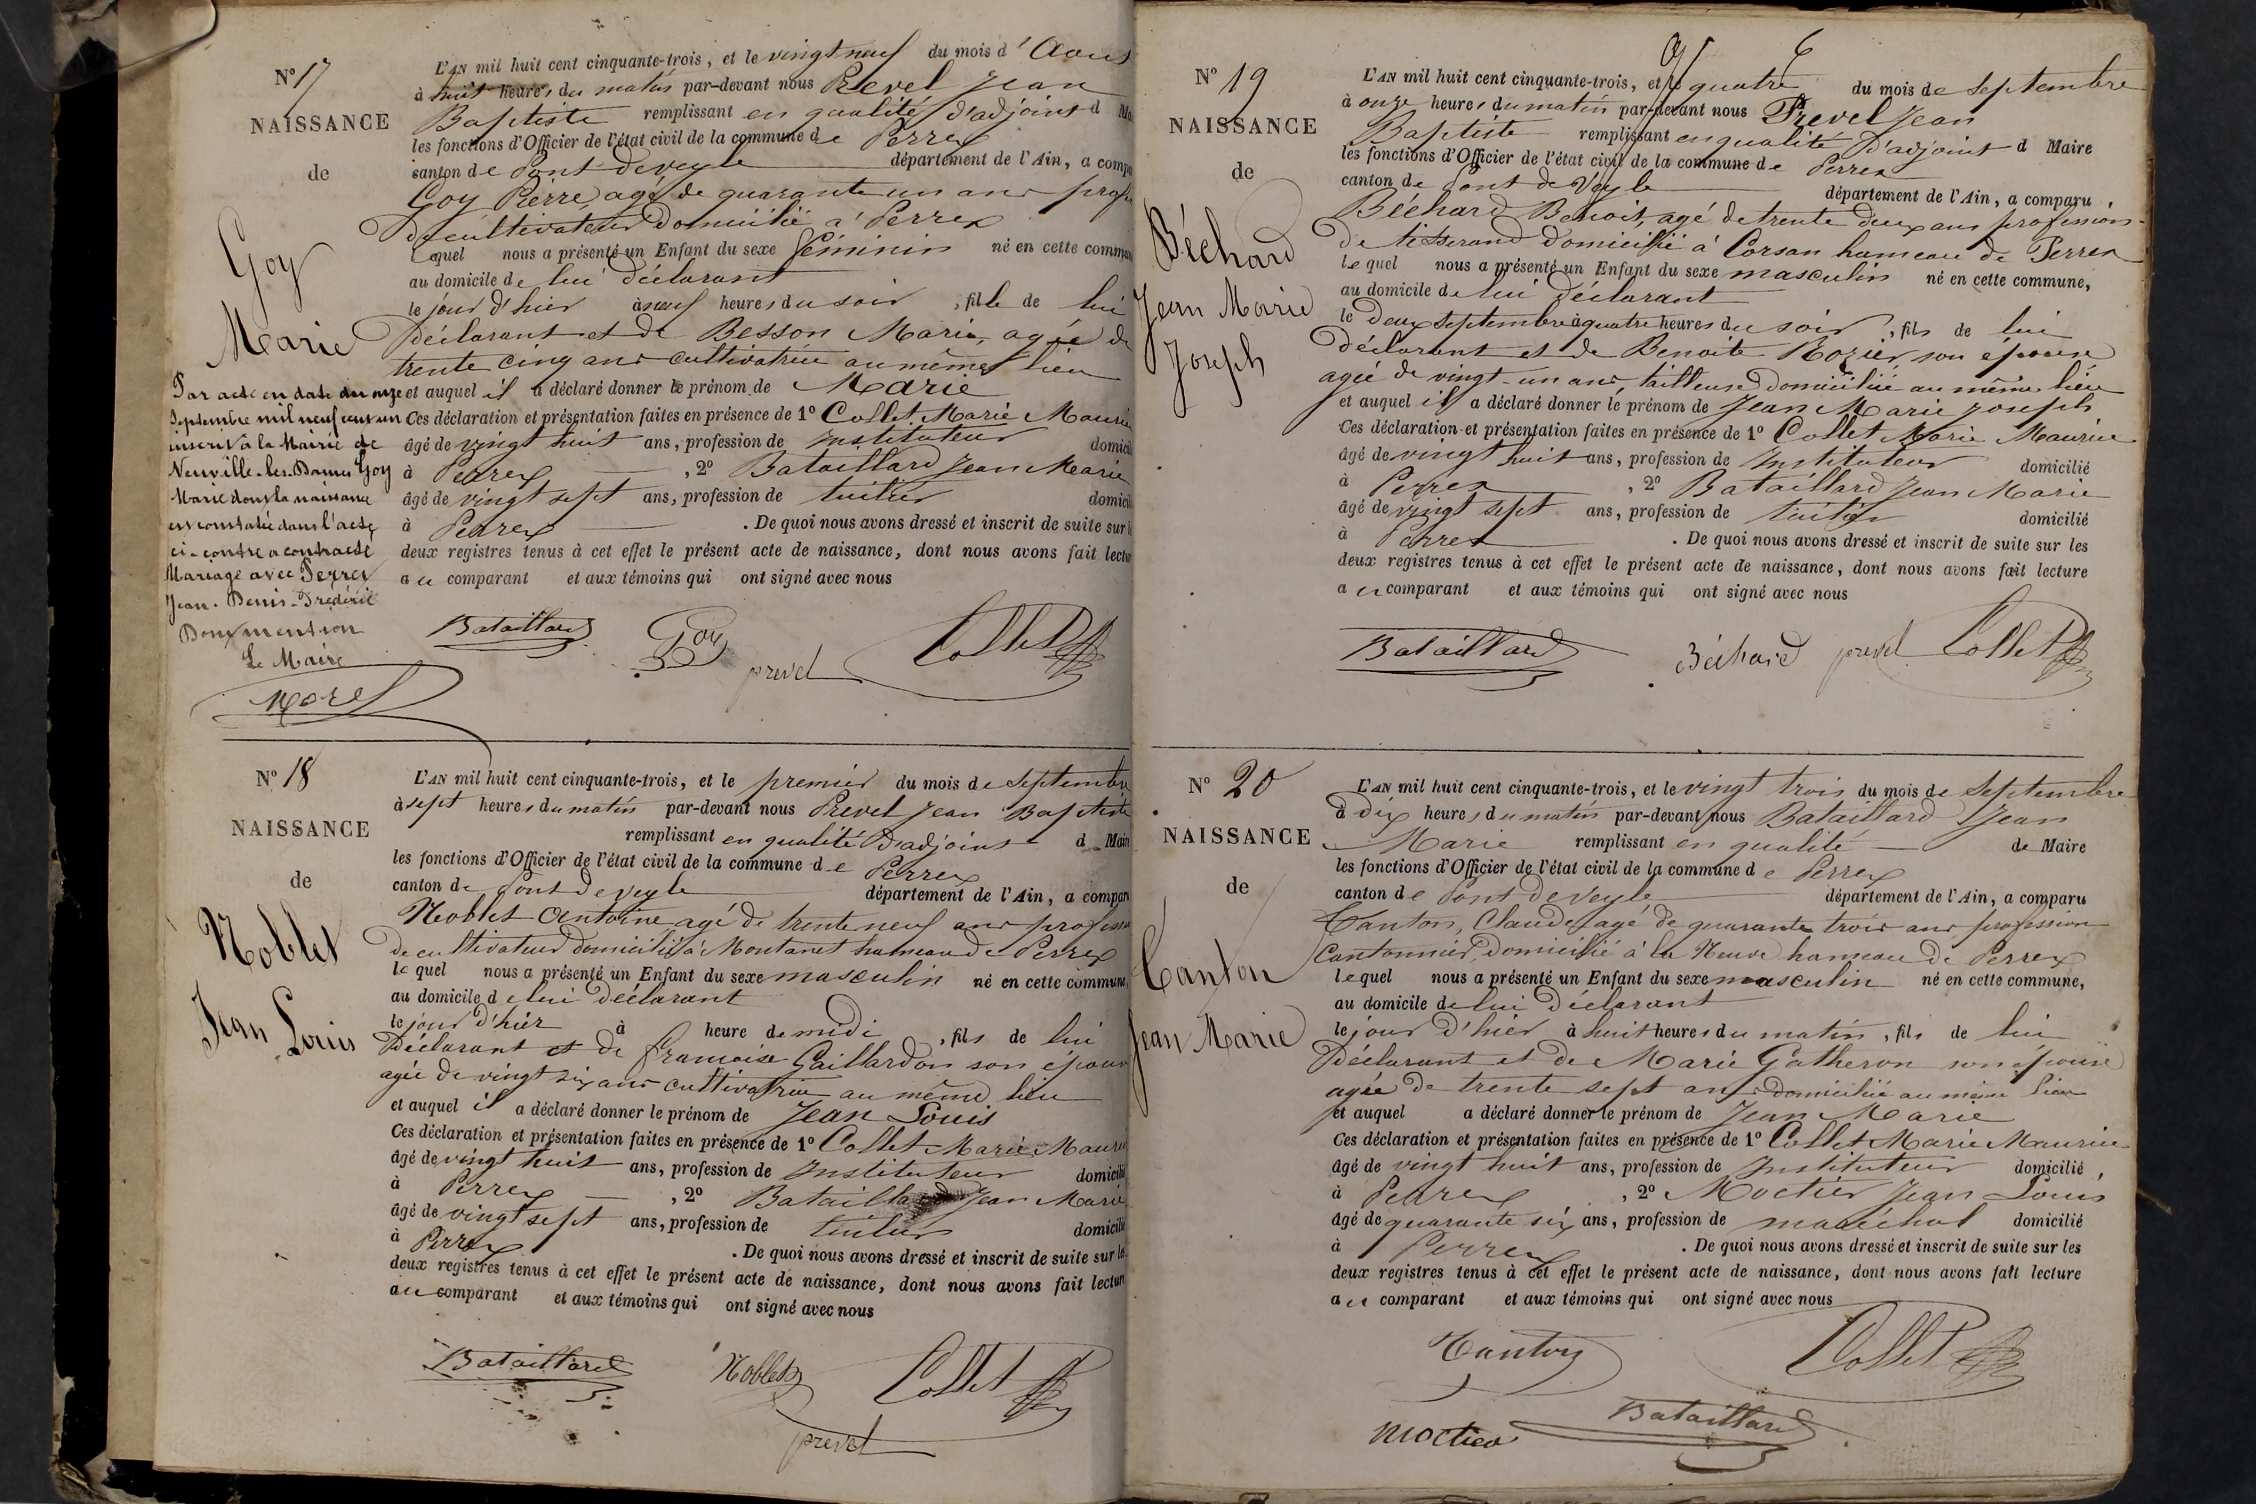 N° 17
NAISSANCE
de
Goy
Marie
Par acte en date du onze
Septembre mil neuf cent un
inscrit à la Mairie de
Neuville-les-Dames Goy
Marie dont la naissance
est constatée dans l'acte
ci-contre a contracté
Mariage avec Perret
Jean-Denis-Frédéric
Dont mention
Le Maire
Morel
L'AN mil huit cent cinquante-trois, et le vingt neuf du mois d'Aout
à huit heures du matin par-devant nous Prevel Jean
Baptiste remplissant en qualité d'adjoint d Ma
les fonctions d'Officier de l'état civil de la commune de Perrex
canton de Pont deveyle département de l'Ain, a compa
Goy Pierre, agé de quarante un ans profes
de cultivateur domicilié à Perrex
Lequel nous a présenté un Enfant du sexe féminin né en cette commun
au domicile de lui déclarant
le jour d'hier à neuf heures du soir, fille de lui
Déclarant et de Besson Marie, agée de
trente cinq ans cultivatrice au même lieu
et auquel il a déclaré donner le prénom de Marie
Ces déclaration et présentation faites en présence de 1° Collet Marie Mauric
âgé de vingt huit ans, profession de instituteur domicili
à Perrex, 2° Bataillard Jean Marie
âgé de vingt sept ans, profession de tuilier domicili
à Perrex. De quoi nous avons dressé et inscrit de suite sur le
deux registres tenus à cet effet le présent acte de naissance, dont nous avons fait lectur
au comparant et aux témoins qui ont signé avec nous
Bataillard Goy prevel Collet
N° 18
NAISSANCE
de
Noblet
Jean Louis
L'AN mil huit cent cinquante-trois, et le premier du mois de Septembre
à sept heures du matin par-devant nous Prevel Jean Baptiste
remplissant en qualité d'adjoint d Maire
les fonctions d'Officier de l'état civil de la commune de Perrex
canton de Pont deveyle département de l'Ain, a comparu
Noblet Antoine agé de trente neuf ans profession
de cultivateur domicilié à Montanet hameau de Perrex
lequel nous a présenté un Enfant du sexe masculin né en cette commune,
au domicile de lui déclarant
le jour d'hier à heure de midi, fils de lui
Déclarant et de francoise Gaillardon son épouse
agée de vingt six ans cultivatrice au même lieu
et auquel il a déclaré donner le prénom de Jean Louis
Ces déclaration et présentation faites en présence de 1° Collet Marie Mauric
âgé de vingt huit ans, profession de instituteur domicilié
à Perrex, 2° Bataillard Jean Marie
âgé de vingt sept ans, profession de tuilier domicilié
à Perrex. De quoi nous avons dressé et inscrit de suite sur les
deux registres tenus à cet effet le présent acte de naissance, dont nous avons fait lecture
au comparant et aux témoins qui ont signé avec nous
Bataillard Noblet Collet
prevel
N° 19
NAISSANCE
de
Béchard
Jean Marie
Joseph
L'AN mil huit cent cinquante-trois, et le quatre du mois de septembre
à onze heures du matin par-devant nous Prevel Jean
Baptiste remplissant en qualité d'adjoint d Maire
les fonctions d'Officier de l'état civil de la commune de Perrex
canton de Pont de Veyle département de l'Ain, a comparu
Béchard Benoit, agé de trente deux ans profession
de tisserand domicilié à Corsan hameau de Perrex
Lequel nous a présenté un Enfant du sexe masculin né en cette commune,
au domicile de lui déclarant
le deux septembre à quatre heures du soir, fils de lui
déclarant et de Benoite Rozier son épouse
agée de vingt-un ans, tailleuse domiciliée au même lieu
et auquel il a déclaré donner le prénom de Jean Marie Joseph
Ces déclaration et présentation faites en présence de 1° Collet Marie Maurice
âgé de vingt huit ans, profession de instituteur domicilié
à Perrex, 2° Bataillard Jean Marie
âgé de vingt sept ans, profession de tuilier domicilié
à Perrex. De quoi nous avons dressé et inscrit de suite sur les
deux registres tenus à cet effet le présent acte de naissance, dont nous avons fait lecture
au comparant et aux témoins qui ont signé avec nous
Bataillard Béchard prevel Collet
N° 20
NAISSANCE
de
Canton
Jean Marie
L'AN mil huit cent cinquante-trois, et le vingt trois du mois de Septembre
à dix heures du matin par-devant nous Bataillard Jean
Marie remplissant en qualité de Maire
les fonctions d'Officier de l'état civil de la commune de Perrex
canton de Pont deveyle département de l'Ain, a comparu
Canton, Claude agé de quarante trois ans profession
cantonnier, domicilié à la Neuve hameau de Perrex
lequel nous a présenté un Enfant du sexe masculin né en cette commune,
au domicile de lui déclarant
le jour d'hier à huit heures du matin, fils de lui
Déclarant et de Marie Gatheron son épouse
agée de trente sept ans domiciliée au même lieu
et auquel a déclaré donner le prénom de Jean Marie
Ces déclaration et présentation faites en présence de 1° Collet Marie Maurice
âgé de vingt huit ans, profession de instituteur domicilié,
à Perrex, 2° Moctier Jean Louis
âgé de quarante six ans, profession de maréchal domicilié
à Perrex. De quoi nous avons dressé et inscrit de suite sur les
deux registres tenus à cet effet le présent acte de naissance, dont nous avons fait lecture
au comparant et aux témoins qui ont signé avec nous
Canton Collet
Bataillard
moctier